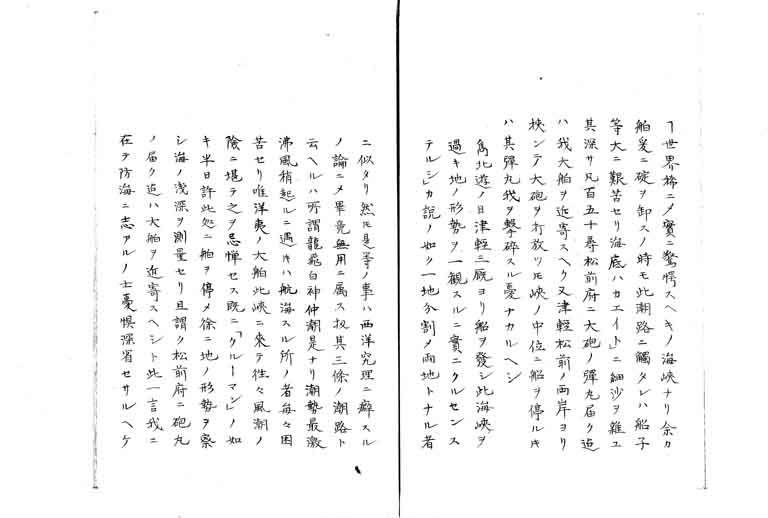 ヿ世界稀ニ〆實ニ驚愕スヘキノ海峽ナリ余カ
舶爰ニ碇ヲ卸スノ時モ此潮路ニ觸タレハ船子
等大ニ艱苦セリ海底ハカエイト」ニ細沙ヲ雜ユ
其深サ凡百五十尋松前府ニ大砲ノ彈丸届ク迄
ハ我大舶ヲ近寄スヘク又津輕松前ノ両岸ヨリ
挾ンテ大砲ヲ打放ツモ峽ノ中位ニ船ヲ停ルキ
ハ其彈丸我ヲ擊碎スル憂ナカルヘシ
雋北遊ノ日津輕三厩ヨリ船ヲ發シ此海峽ヲ
過キ地ノ形勢ヲ一觀スルニ實ニクルセンス
テルシ」カ説ノ如ク一地分割〆両地トナル者
ニ似タリ然モ是等ノ事ハ西洋究理ニ癖スル
ノ論ニ〆畢竟無用ニ属ス扨其三條ノ潮路ト
云ヘルハ所謂龍飛白神仲潮是ナリ潮勢最激
沸風稍起ルニ遇キハ航海スル所ノ者毎々困
苦セリ唯洋夷ノ大舶此峽ニ來テ徃々風潮ノ
險ニ堪テ之ヲ忌憚セス既ニ「クルーマン」ノ如
キ半日許此処ニ舶ヲ停メ徐ニ地ノ形勢ヲ察
シ海ノ浅深ヲ測量セリ且謂ク松前府ニ砲丸
ノ届ク迄ハ大舶ヲ近寄スヘシト此一言我ニ
在テ防海ニ志アルノ士憂惧深省セサルヘケ